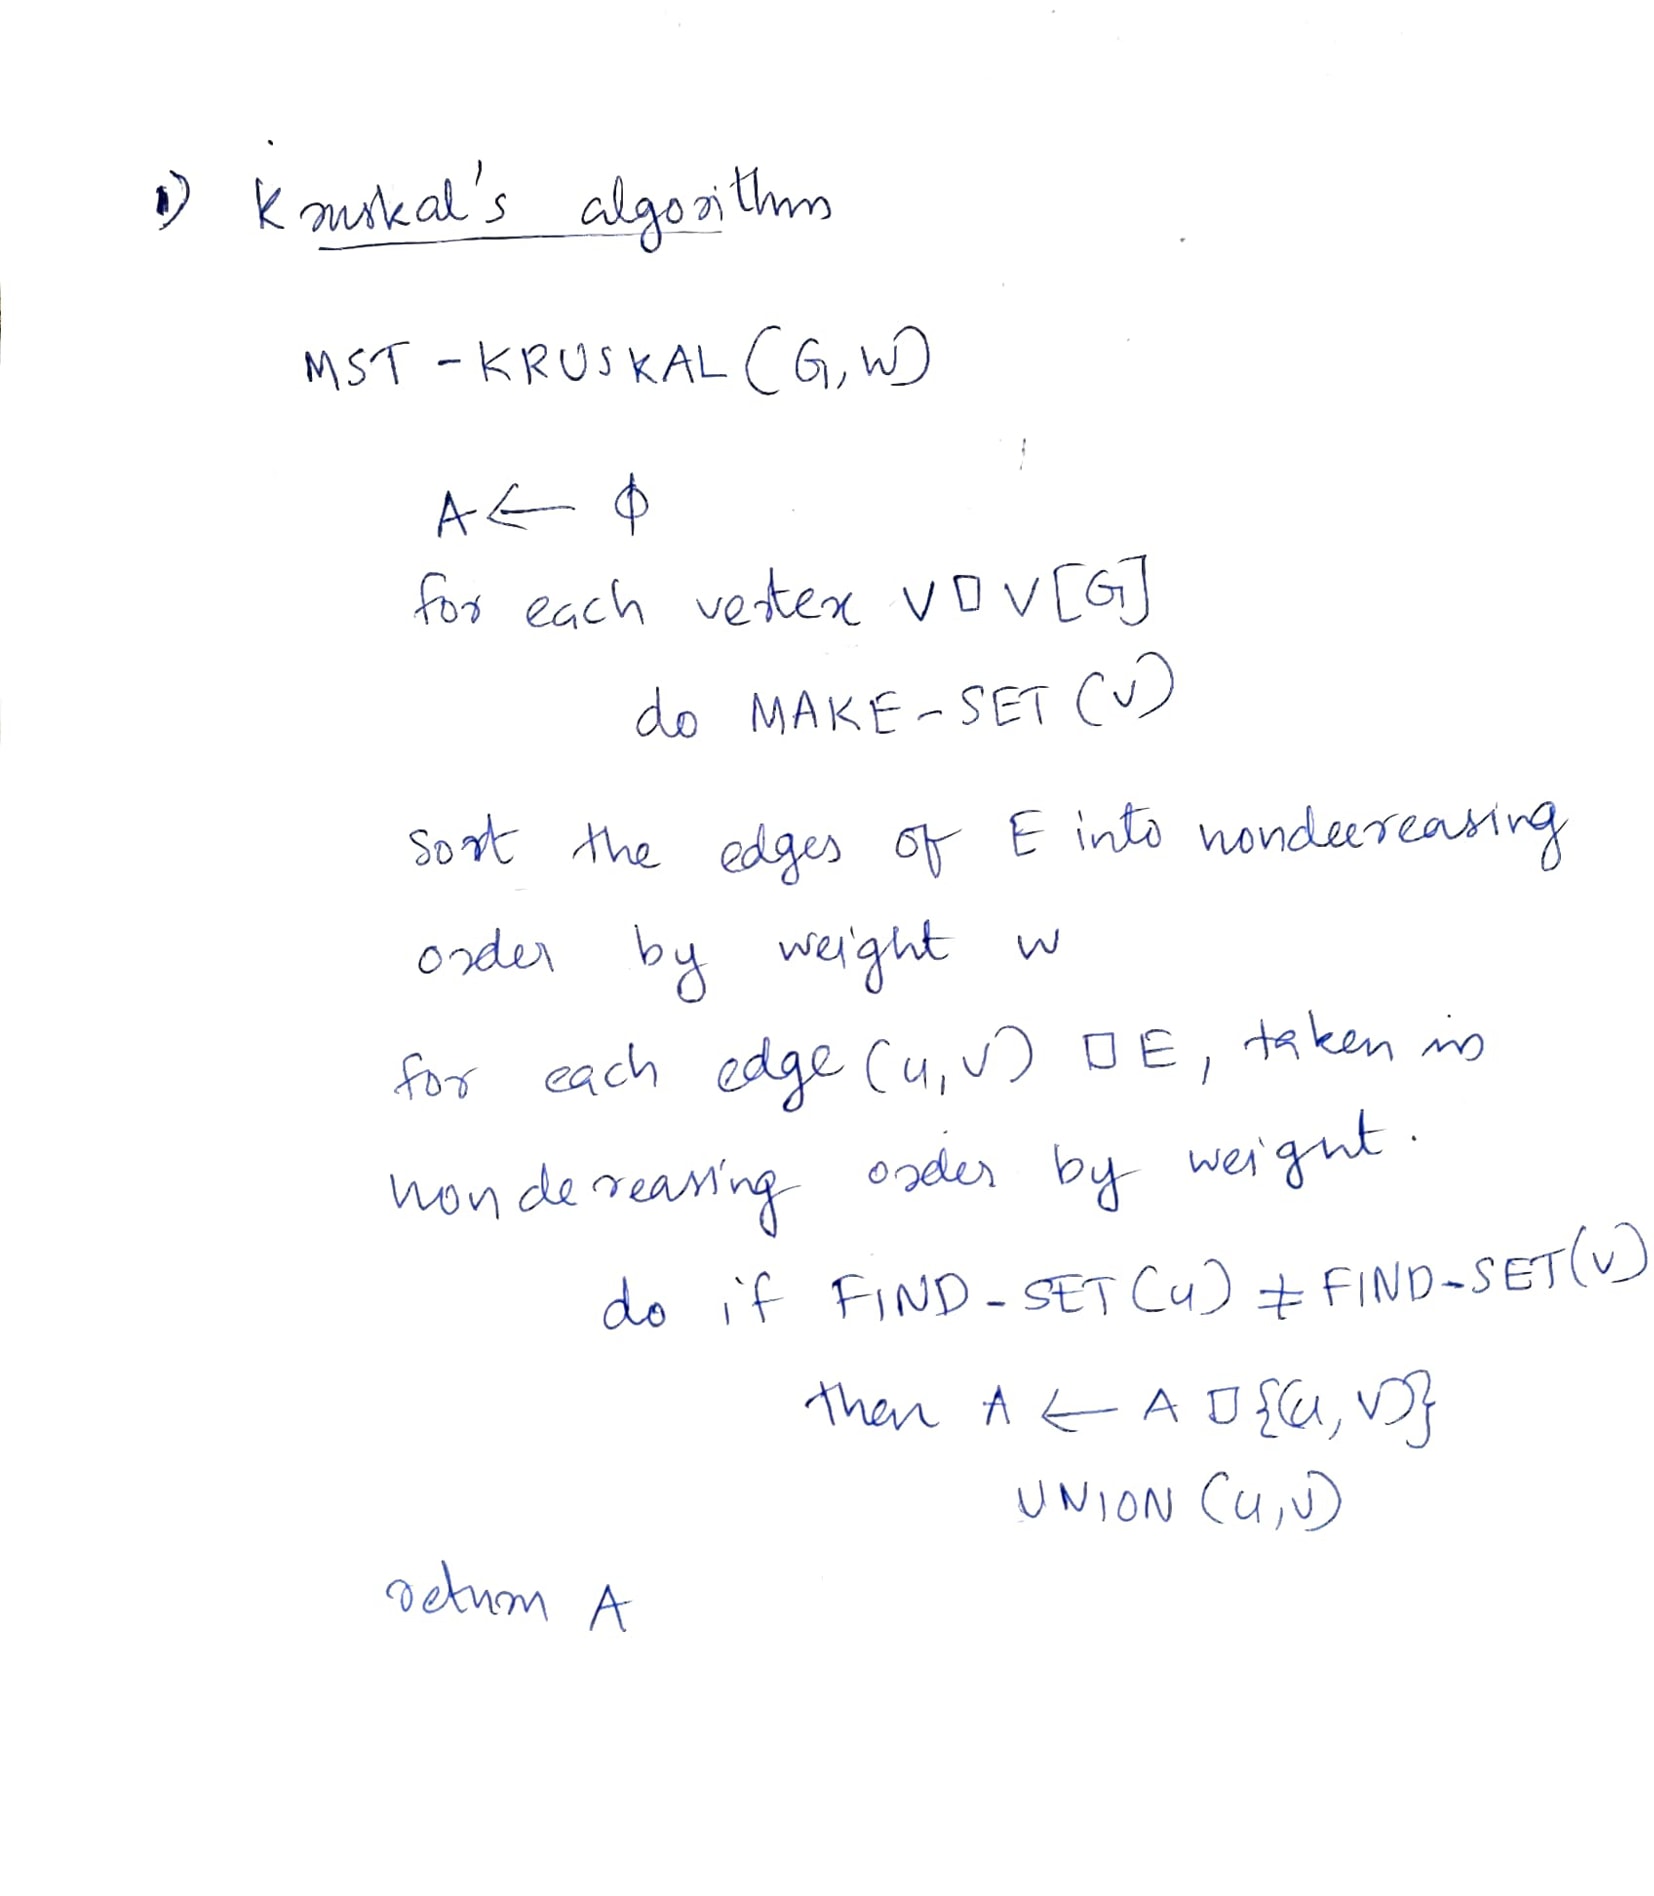 1) Kruskal's algorithm
MST - KRUSKAL (G, W)
A ← ϕ
for each vertex V □ V[G]
do MAKE - SET (V)
Sort the edges of E into nondecreasing
order by weight w
for each edge (u, v) □ E, taken in
nondereasing order by weight.
do if FIND - SET (u) ≠ FIND - SET (v)
then A ← A □ {(u, v)}
UNION (u, v)
return A